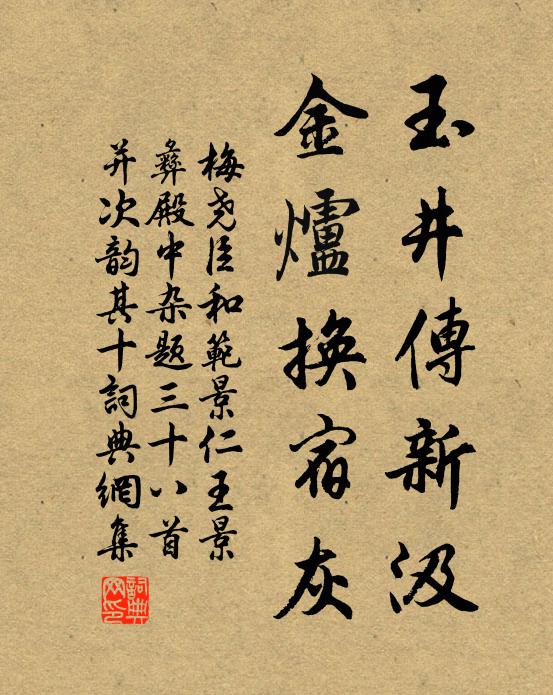 玉井傳新汲
金爐換宿灰
梅尧臣和範景仁王景
彝殿中杂题三十八首
并次韵其十詞典網集
詞典网印